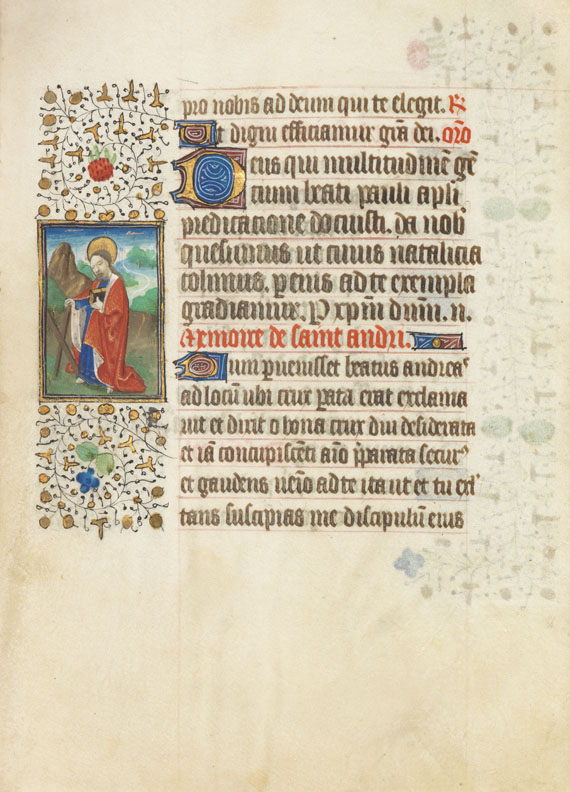 pro nobis ad deum qui te elegit. R
Ut digni efficiamur gr̃a dei. or̃o
Deus qui multitudinẽ gẽ
tium beati pauli apl̃i
predicatione docuisti. da nob̾
quesumus ut cuius natalicia
colimus. p̱eius ad te exempla
gradiamur. P̱ xp̃m dnm̃. n.
Memoire de saint andri.
Cum p̱uenisset beatus andreaꝰ
ad locũ ubi crux p̱ata erat exclama
uit et dixit o bona crux diu desiderata
et iã concupisceti aĩo p̃parata securꝰ
et gaudens uẽio ad te ita ut et tu exl̾
tans suscipias me discipulũ eius